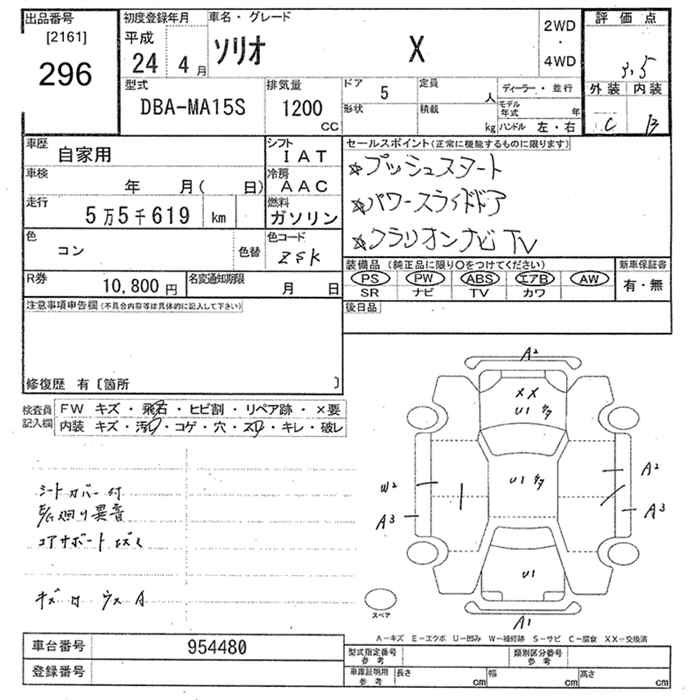 出品番号
[2161]
296
初度登録年月
平成
24 4月
車名・グレード
ソリオ X
2WD
・
4WD
評価点
3.5
外装 内装
C B
型式
DBA-MA15S
排気量
1200
CC
ドア
5
形状
定員
人
積載
kg
ディーラー・並行
モデル年式 年
ハンドル 左・右
車歴
自家用
シフト
IAT
車検
年 月( 日)
冷房
AAC
走行
5万5千619 km
燃料
ガソリン
色
コン
色替
色コード
ZSK
R券
10,800円
名変通知期限
月 日
セールスポイント(正常に機能するものに限ります)
☆プッシュスタート
☆パワースライドドア
☆クラリオンナビ TV
装備品(純正品に限り○をつけてください)
PS PW ABS エアB AW
SR ナビ TV カワ
新車保証書
有・無
後日品
注意事項申告欄(不具合内容等は具体的に記入して下さい)
修復歴 有〔箇所 〕
検査員記入欄
FW キズ・飛石・ヒビ割・リペア跡・×要
内装 キズ・汚れ・コゲ・穴・スレ・キレ・破レ
シートカバー付
異音
コアサポート
キズ 付 ウス A
A2
XX
U1
U1
W2
A3
A2
A3
U1
A1
スペア
A-キズ E-エクボ U-凹み W-補修跡 S-サビ C-腐食 XX-交換済
車台番号
954480
登録番号
型式指定番号
参考
類別区分番号
参考
車庫証明用
参考
長さ cm
幅 cm
高さ cm